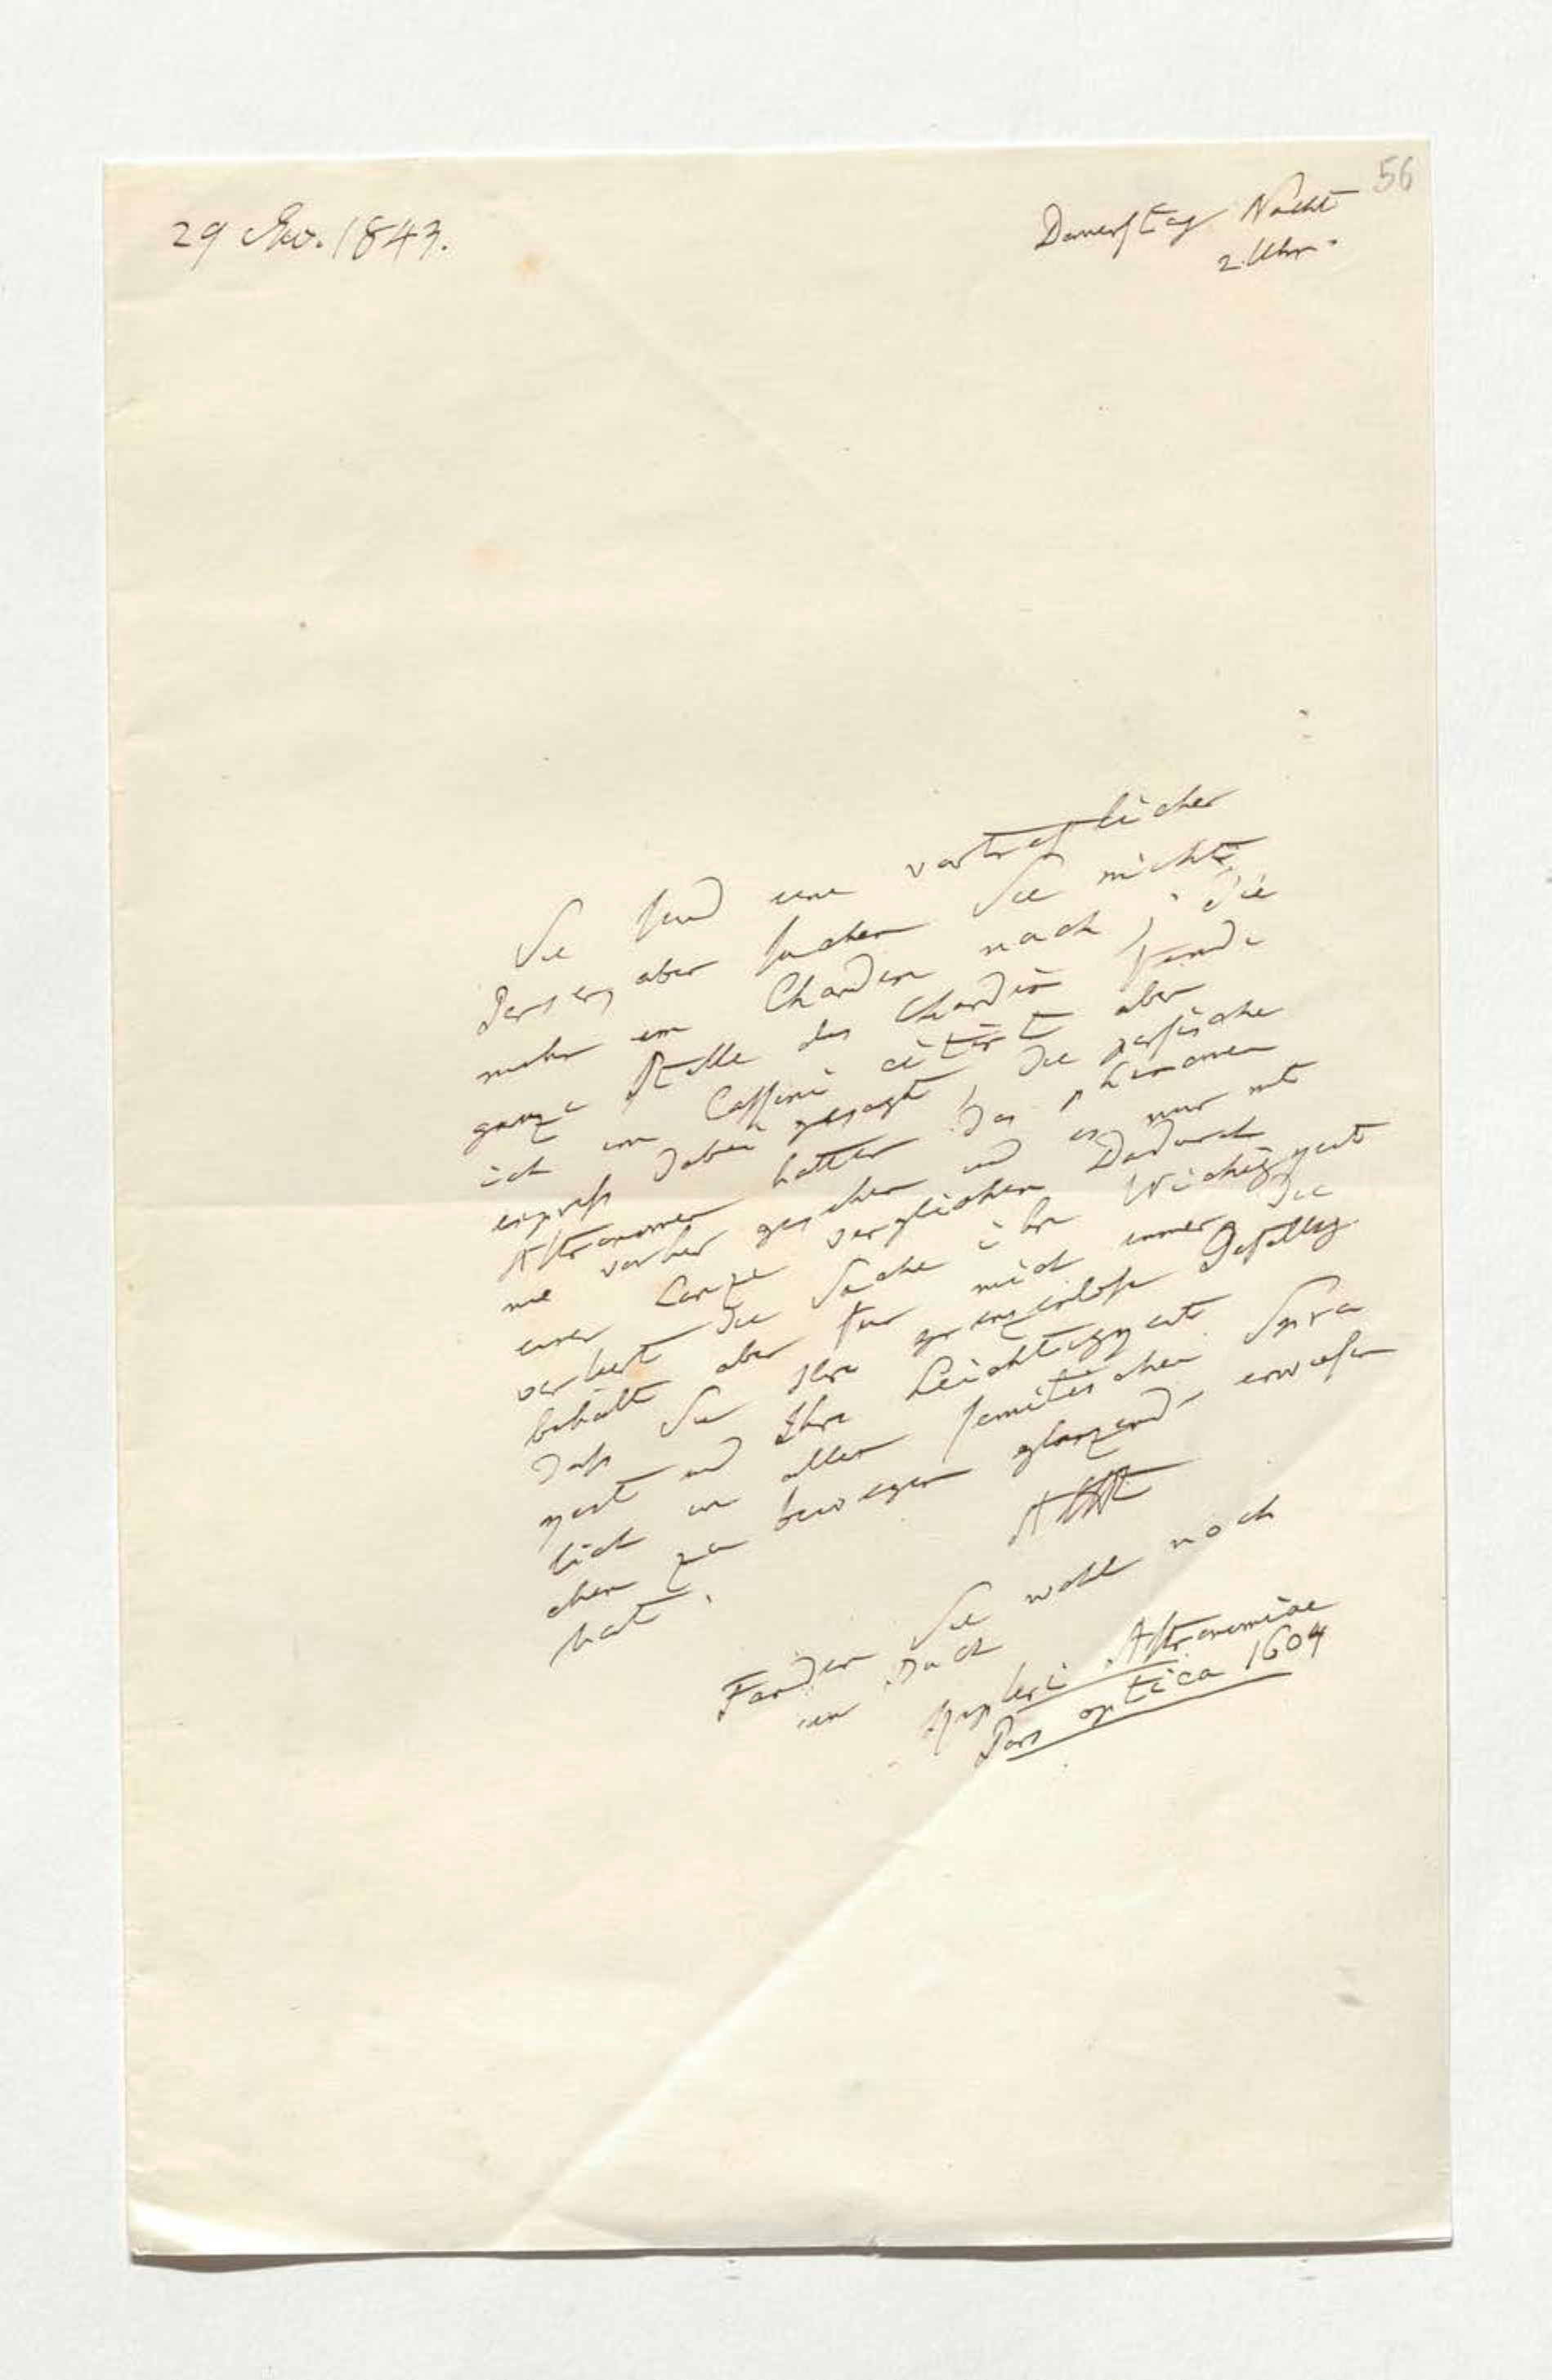 56
29 Nov. 1843.
Donnerstag Nacht
2 Uhr.
Sie sind ein vortreflicher
Perser, aber suchen Sie nicht
mehr im Chardin nach; die
ganze Stelle des Chardin finde
ich im Cassini citirt aber
express dabei gesagt, die persische
Astronomen hatten das phänomen
nie vorher gesehen und es nur mit
einer Lanze verglichen. Dadurch
verliert die Sache ihre Wichtigkeit
behält aber für mich immer die
dass sie Ihre grenzenlose Gefällig
keit und Ihre Leichtigkeit
sich in allen semitischen Spra
chen zu bewegen glänzend erwiesen
hat.
AHt
Fanden Sie wohl noch
ein Buch
Kepleri Astronomiae
Pars optica 1604